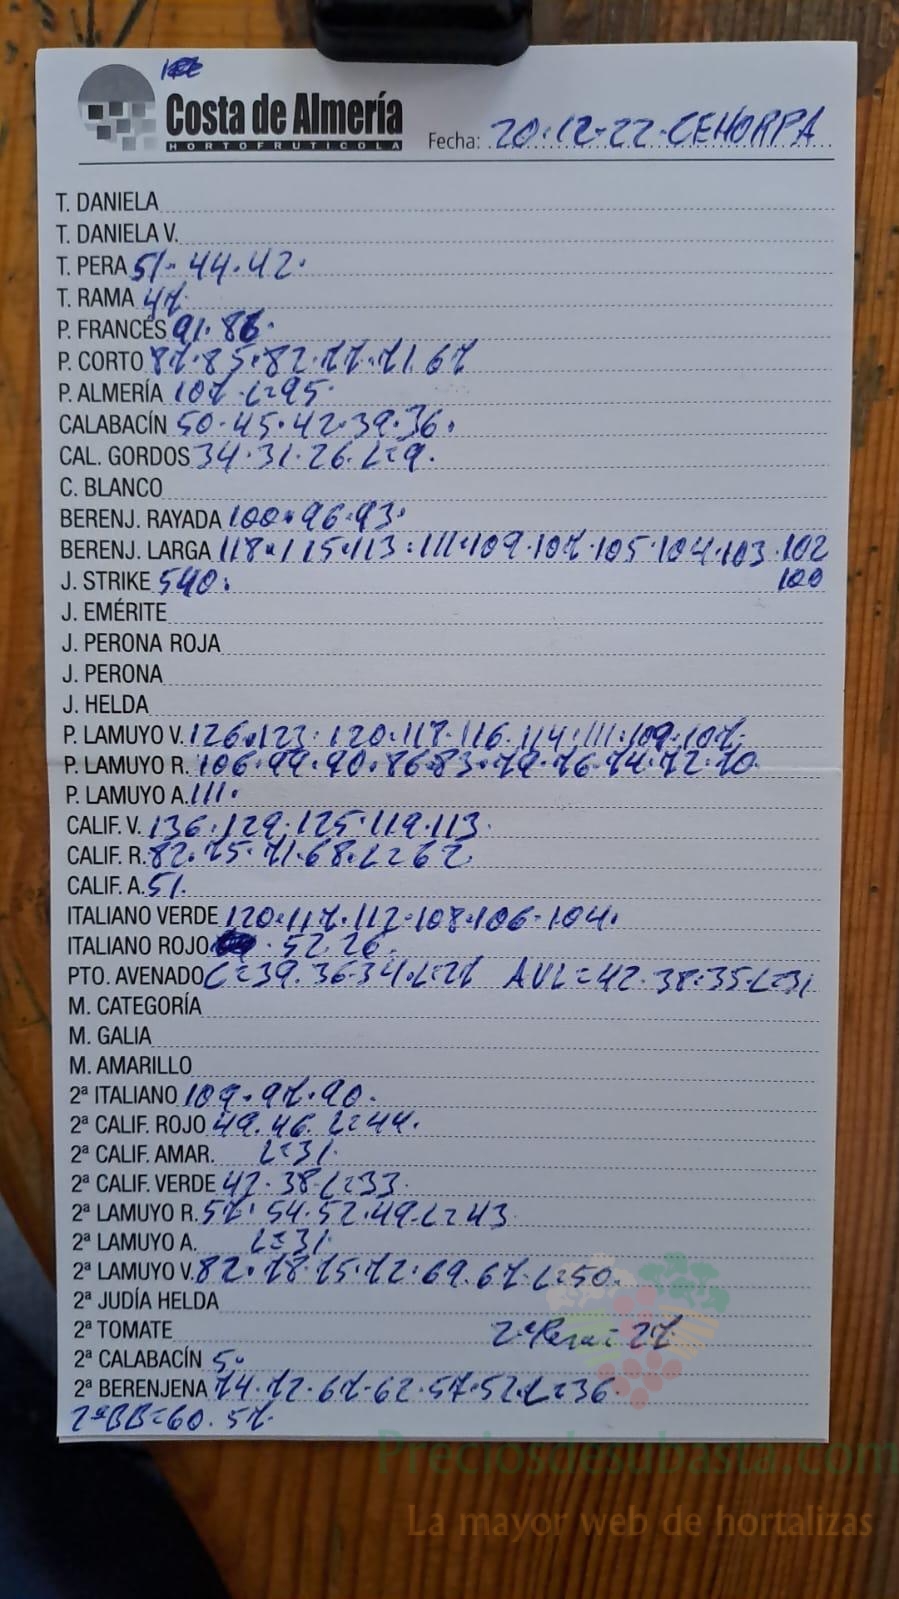 Costa de Almería
HORTOFRUTICOLA
Fecha: 20.12.22.CEHORPA
T. DANIELA
T. DANIELA V.
T. PERA 51. 44.42.
T. RAMA 47
P. FRANCÉS 91.86.
P. CORTO 87.85.82.77.71.67
P. ALMERÍA 107.L=95.
CALABACÍN 50.45.42.39.36.
CAL. GORDOS 34.31.26.L=9.
C. BLANCO
BERENJ. RAYADA 100.96.93.
BERENJ. LARGA 118.115.113.111.109.107.105.104.103.102
100
J. STRIKE 540.
J. EMÉRITE
J. PERONA ROJA
J. PERONA
J. HELDA
P. LAMUYO V. 126.123.120.118.116.114.111.109.107.
P. LAMUYO R. 106.99.90.86.83.79.76.74.72.70.
P. LAMUYO A. 111.
CALIF. V. 136.129.125.119.113.
CALIF. R. 82.75.71.68.L=62.
CALIF. A. 51.
ITALIANO VERDE 120.117.112.108.106.104.
ITALIANO ROJO . 52.26.
PTO. AVENADO C=39.36.34.L=27 AVL=42.38.35.L=31
M. CATEGORÍA
M. GALIA
M. AMARILLO
2ª ITALIANO 109.97.90.
2ª CALIF. ROJO 49.46.L=44.
2ª CALIF. AMAR. L=31.
2ª CALIF. VERDE 42.38.L=33.
2ª LAMUYO R. 57.54.52.49.L=43
2ª LAMUYO A. L=31.
2ª LAMUYO V. 82.78.75.72.69.67.L=50.
2ª JUDÍA HELDA
2ª TOMATE 2ª Pera=27.
2ª CALABACÍN 5.
2ª BERENJENA 74.72.67.62.57.52.L=36.
2ªBB=60.57.
Preciosdesubasta.com
La mayor web de hortalizas